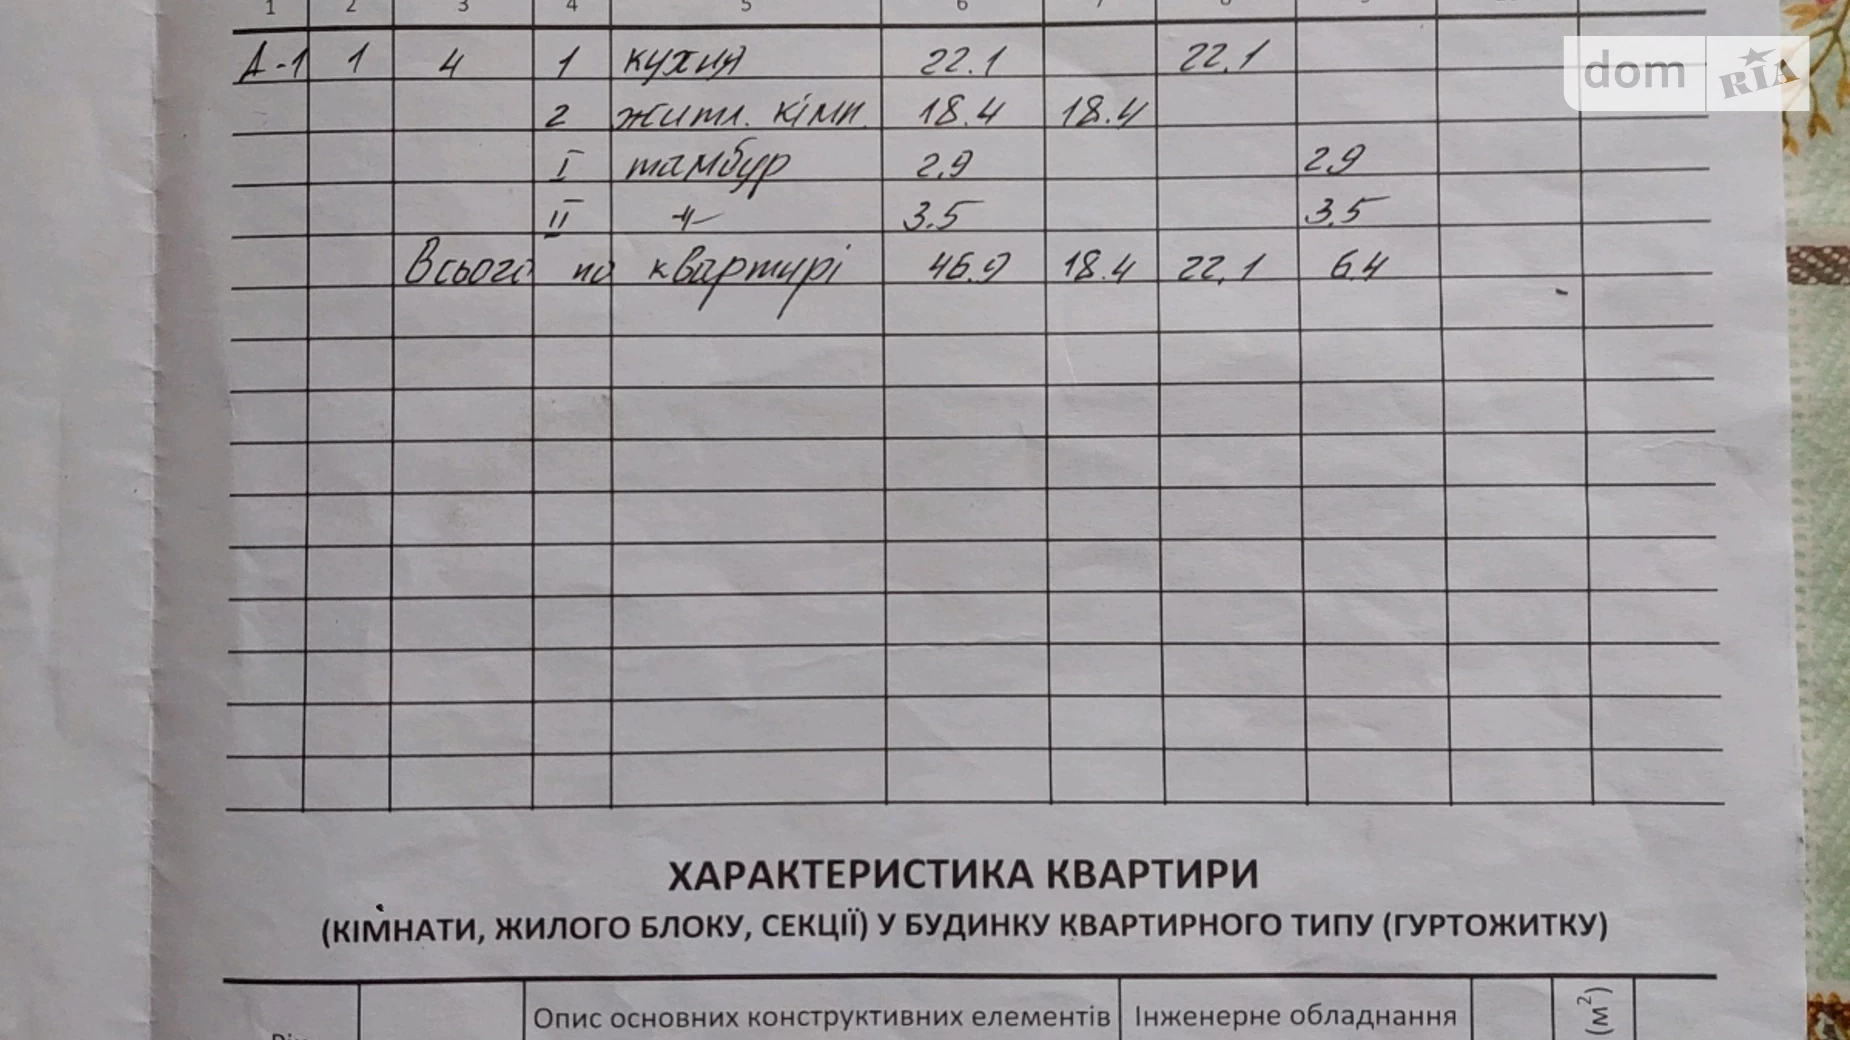 1 2 3 4 5 6 7 8 9
А-1 1 4 1 кухня 22.1 22.1
2 житл. кімн. 18.4 18.4
I тамбур 2.9 2.9
II -"- 3.5 3.5
Всього по квартирі 46.9 18.4 22.1 6.4
dom RIA
ХАРАКТЕРИСТИКА КВАРТИРИ
(КІМНАТИ, ЖИЛОГО БЛОКУ, СЕКЦІЇ) У БУДИНКУ КВАРТИРНОГО ТИПУ (ГУРТОЖИТКУ)
Опис основних конструктивних елементів Інженерне обладнання (м²)